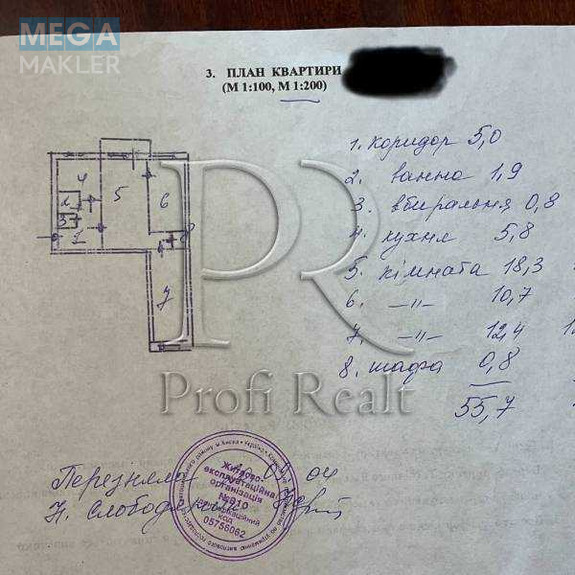 MEGA
MAKLER
3. ПЛАН КВАРТИРИ
(М 1:100, М 1:200)
1. коридор 5,0
2. ванна 1,9
3. вбиральня 0,8
4. кухня 5,8
5. кімната 18,3
6. —"— 10,7
7. —"— 12,4
8. шафа 0,8
55,7
4
5
6
2
3
1
8
7
PR
Profi Realt
Житлово-
експлуатаційна
організація
№910
Ідентифікаційний
код
05756062